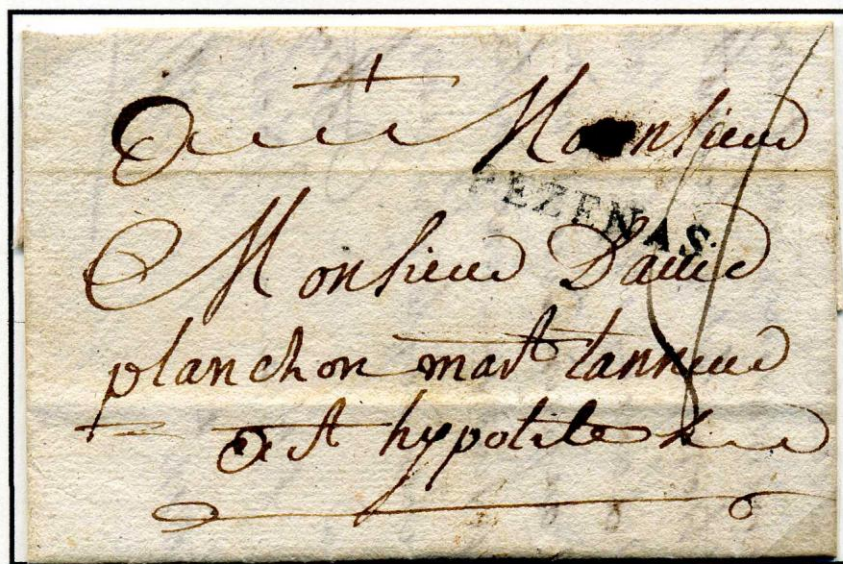 Monsieur
PEZENAS
Monsieur David
planchon mar̄t tanneur
a St hypolite